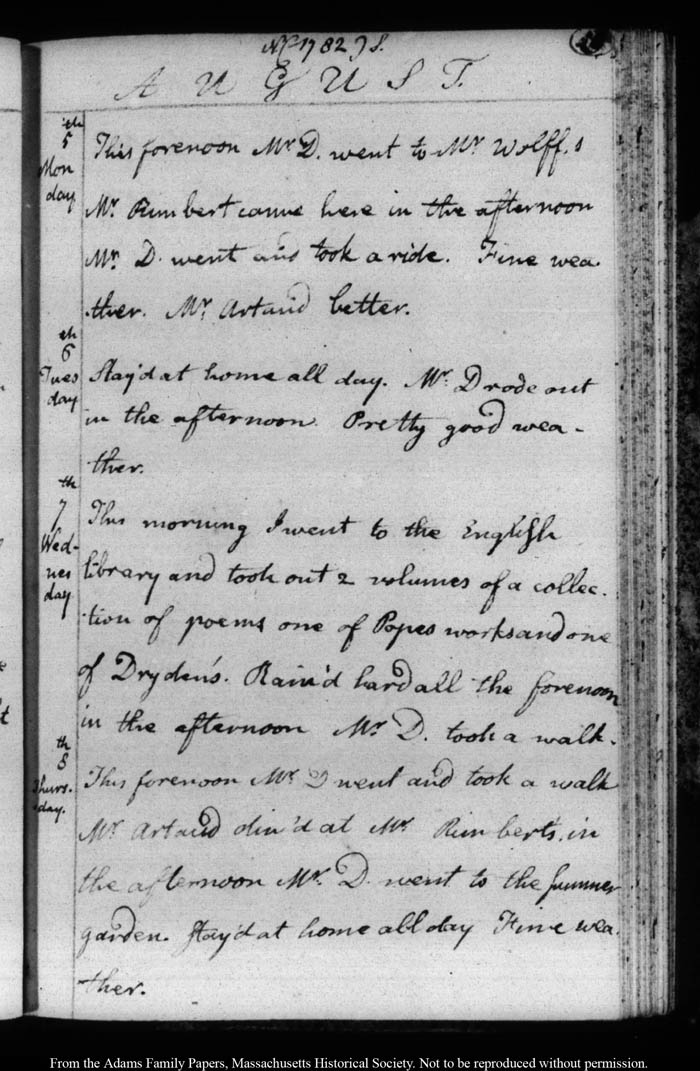 NS 1782 JS.
AUGUST.
5th
Mon
day
This forenoon Mr. D. went to Mr. Wolff.s
Mr. Rimbert came here in the afternoon
Mr. D. went and took a ride. Fine wea-
ther. Mr. Artaud better.
6th
Tues
day
Stay'd at home all day. Mr. D rode out
in the afternoon. Pretty good wea-
ther.
7th
Wed-
nes
day
This morning I went to the English
library and took out 2 volumes of a collec-
tion of poems one of Popes works and one
of Dryden's. Rain'd hard all the forenoon
in the afternoon Mr. D. took a walk.
8th
Thurs-
day.
This forenoon Mr. D went and took a walk
Mr. Artaud din'd at Mr. Rimberts. in
the afternoon Mr. D. went to the summer
garden. Stay'd at home all day Fine wea-
ther.
From the Adams Family Papers, Massachusetts Historical Society. Not to be reproduced without permission.